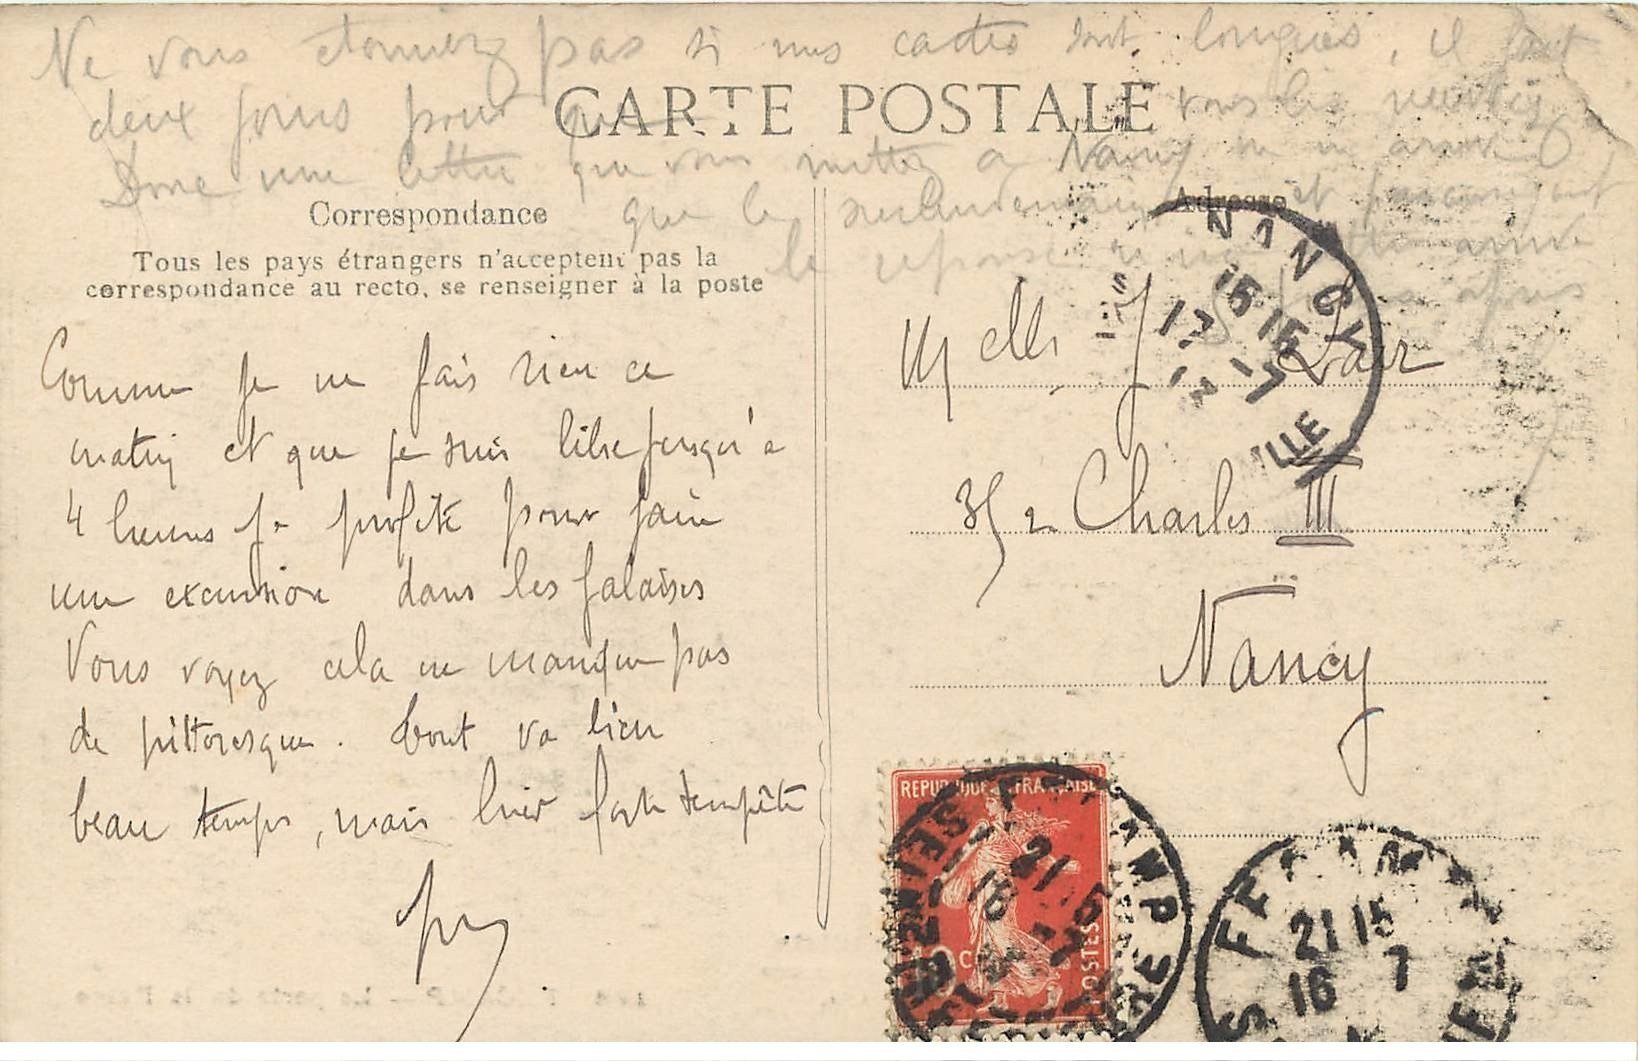 Ne vous étonnez pas si mes cartes sont longues, il faut
deux jours pour que vous les
CARTE POSTALE
Donc une lettre que vous mettez à Nancy
que le surlendemain et
la réponse
après
Correspondance
Adresse
Tous les pays étrangers n'acceptent pas la
correspondance au recto, se renseigner à la poste
Comme je ne fais rien ce
matin et que je suis libre jusqu'à
4 heures je profite pour faire
une excursion dans les falaises
Vous voyez cela ne manque pas
de pittoresque. Tout va bien
beau temps, mais hier forte tempête
Melle J
35 r Charles III
Nancy
NANCY
15 15
17 7
12
VILLE
REPUBLIQUE FRANÇAISE
POSTES
10 C
21 15
16 7
FECAMP
21 15
16 7